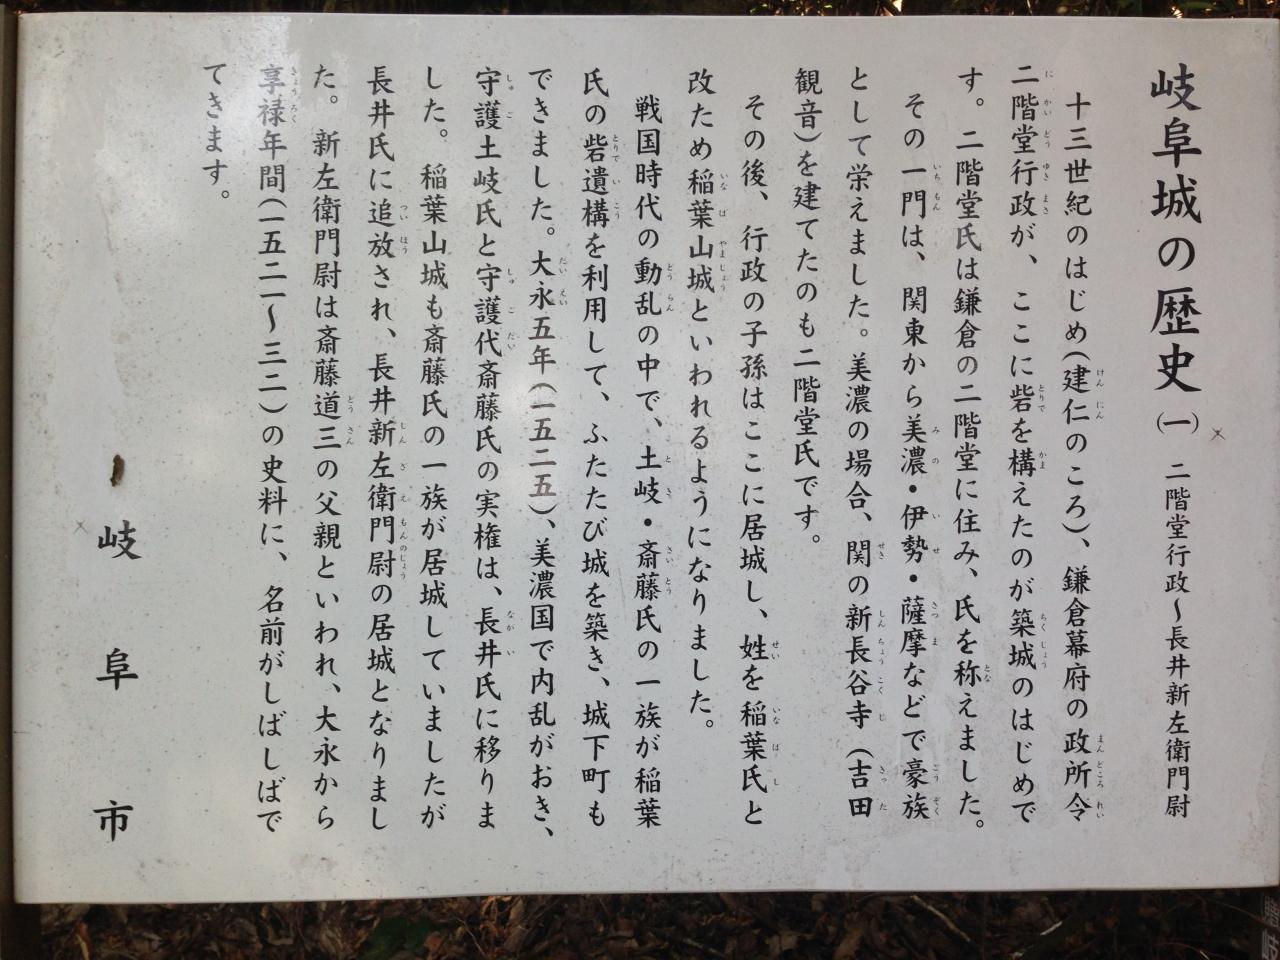 岐阜城の歴史(一) 二階堂行政～長井新左衛門尉
十三世紀のはじめ(建仁のころ)、鎌倉幕府の政所令
二階堂行政が、ここに砦を構えたのが築城のはじめで
す。二階堂氏は鎌倉の二階堂に住み、氏を称えました。
その一門は、関東から美濃・伊勢・薩摩などで豪族
として栄えました。美濃の場合、関の新長谷寺(吉田
観音)を建てたのも二階堂氏です。
その後、行政の子孫はここに居城し、姓を稲葉氏と
改ため稲葉山城といわれるようになりました。
戦国時代の動乱の中で、土岐・斎藤氏の一族が稲葉
氏の砦遺構を利用して、ふたたび城を築き、城下町も
できました。大永五年(一五二五)、美濃国で内乱がおき、
守護土岐氏と守護代斎藤氏の実権は、長井氏に移りま
した。稲葉山城も斎藤氏の一族が居城していましたが
長井氏に追放され、長井新左衛門尉の居城となりまし
た。新左衛門尉は斎藤道三の父親といわれ、大永から
享禄年間(一五二一～三二)の史料に、名前がしばしばで
てきます。
岐阜市